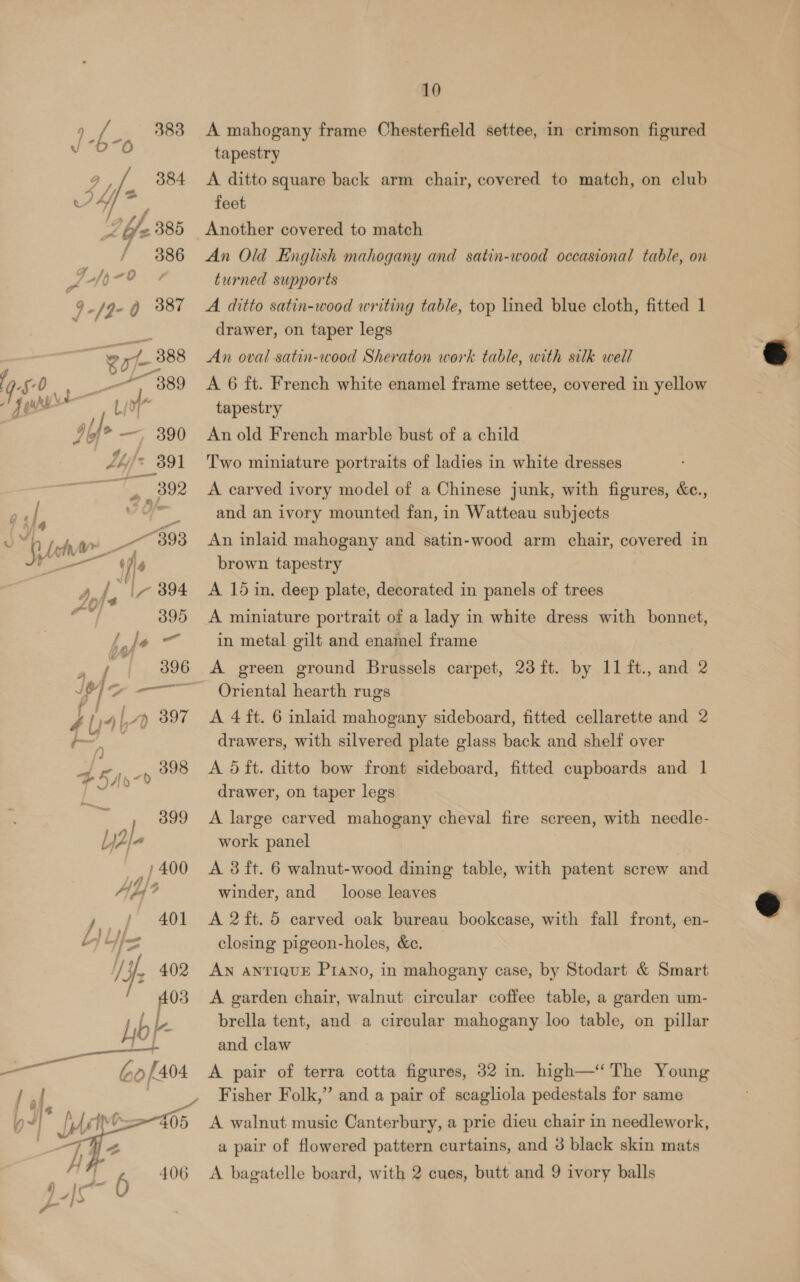 10
383 A mahogany frame Chesterfield settee, in crimson figured
tapestry
384 A ditto square back arm chair, covered to match, on club
feet
385 Another covered to match
386 An Old English mahogany and satin-wood occasional table, on
turned supports
387 A ditto satin-wood writing table, top lined blue cloth, fitted 1
drawer, on taper legs
388 An oval satin-wood Sheraton work table, with silk well
389 A 6 ft. French white enamel frame settee, covered in yellow
tapestry
390 An old French marble bust of a child
391 Two miniature portraits of ladies in white dresses
392 A carved ivory model of a Chinese junk, with figures, &c.,
and an ivory mounted fan, in Watteau subjects
393 An inlaid mahogany and satin-wood arm chair, covered in
brown tapestry
394 A 15 in. deep plate, decorated in panels of trees
395 A miniature portrait of a lady in white dress with bonnet,
in metal gilt and enamel frame
396 A green ground Brussels carpet, 23 ft. by 11 ft., and 2
Oriental hearth rugs
397 A 4 ft. 6 inlaid mahogany sideboard, fitted cellarette and 2
drawers, with silvered plate glass back and shelf over
398 A 5 ft. ditto bow front sideboard, fitted cupboards and 1
drawer, on taper legs
399 A large carved mahogany cheval fire screen, with needle-
work panel
400 A 3 ft. 6 walnut-wood dining table, with patent screw and
winder, and loose leaves
401 A 2 ft. 5 carved oak bureau bookcase, with fall front, en-
closing pigeon-holes, &c.
402 An antique Piano, in mahogany case, by Stodart & Smart
403 A garden chair, walnut circular coffee table, a garden um-
brella tent, and a circular mahogany loo table, on pillar
and claw
404 A pair of terra cotta figures, 32 in. high—“The Young
Fisher Folk,” and a pair of scagliola pedestals for same
405 A walnut music Canterbury, a prie dieu chair in needlework,
a pair of flowered pattern curtains, and 3 black skin mats
406 A bagatelle board, with 2 cues, butt and 9 ivory balls